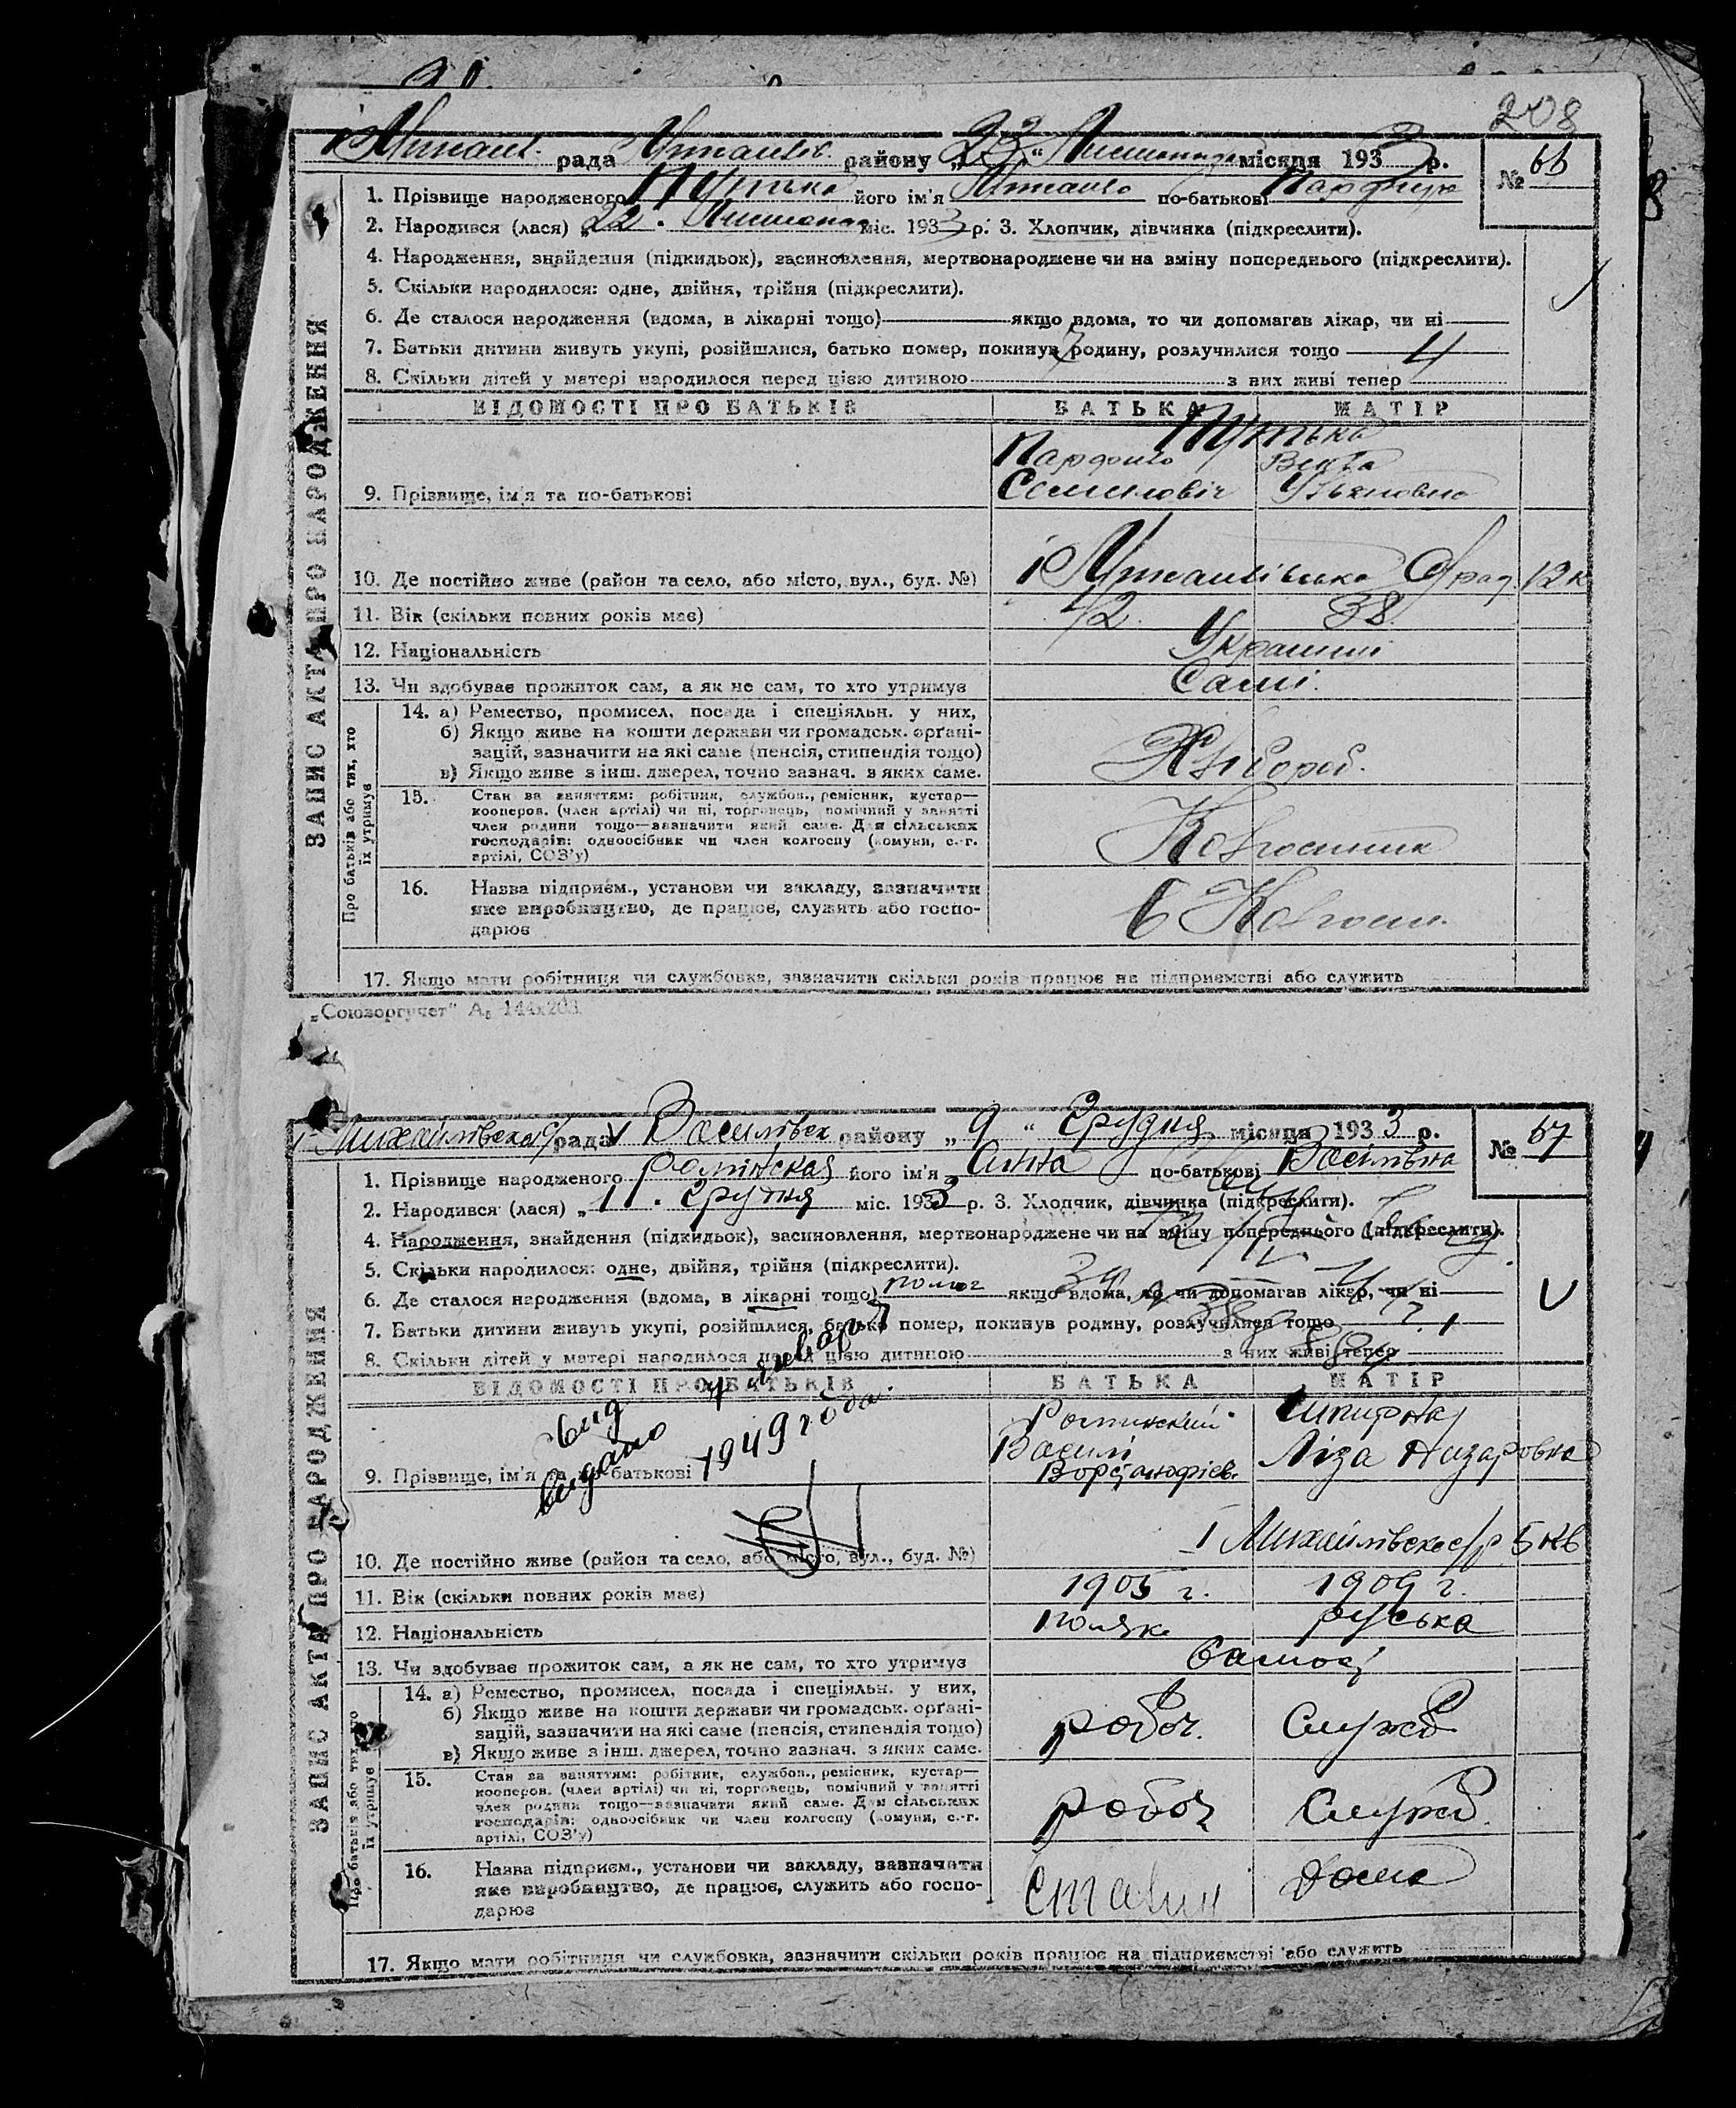 208
рада району „23“ місяця 1933 р.
№ 66
1. Прізвище народженого його ім'я по-батькові
2. Народився (лася) „22. міс. 1933 р. 3. Хлопчик, дівчинка (підкреслити).
4. Народження, знайдення (підкидьок), засиновлення, мертвонароджене чи на зміну попереднього (підкреслити).
5. Скільки народилося: одне, двійня, трійня (підкреслити).
6. Де сталося народження (вдома, в лікарні тощо) якщо вдома, то чи допомагав лікар, чи ні
7. Батьки дитини живуть укупі, розійшлися, батько помер, покинув родину, розлучилися тощо 4
8. Скільки дітей у матері народилося перед цією дитиною з них живі тепер
ВІДОМОСТІ ПРО БАТЬКІВ БАТЬКА МАТІР
9. Прізвище, ім'я та по-батькові
10. Де постійно живе (район та село, або місто, вул., буд. №)
11. Вік (скільки повних років має) 42. 38.
12. Національність Українці
13. Чи здобуває прожиток сам, а як не сам, то хто утримує Самі.
14. а) Ремество, промисел, посада і спеціяльн. у них,
б) Якщо живе на кошти держави чи громадськ. органі-
зацій, зазначити на які саме (пенсія, стипендія тощо)
в) Якщо живе з інш. джерел, точно зазнач. з яких саме.
Хлібороб.
15. Стан за заняттям: робітник, службов., ремісник, кустар—
кооперов. (член артілі) чи ні, торговець, помічний у занятті
член родини тощо—зазначити який саме. Для сільських
господарів: одноосібник чи член колгоспу (комуни, с.-г.
артілі, СОЗ'у)
Колгоспник
16. Назва підприєм., установи чи закладу, зазначити
яке виробництво, де працює, служить або госпо-
дарює
В Колгосп.
17. Якщо мати робітниця чи службовка, зазначити скільки років працює на підприємстві або служить
ЗАПИС АКТА ПРО НАРОДЖЕННЯ
Про батьків або тих, хто
їх утримує
„Союзоргучет“ А₅ 144х203.
рада району „9“ Грудня місяця 1933 р.
№ 67
1. Прізвище народженого його ім'я Анна по-батькові Василівна
2. Народився (лася) „1. Грудня міс. 1933 р. 3. Хлопчик, дівчинка (підкреслити).
4. Народження, знайдення (підкидьок), засиновлення, мертвонароджене чи на зміну попереднього (підкреслити).
5. Скільки народилося: одне, двійня, трійня (підкреслити).
6. Де сталося народження (вдома, в лікарні тощо) якщо вдома, то чи допомагав лікар, чи ні
7. Батьки дитини живуть укупі, розійшлися, батько помер, покинув родину, розлучилися тощо
8. Скільки дітей у матері народилося перед цією дитиною з них живі тепер
ВІДОМОСТІ ПРО БАТЬКІВ БАТЬКА МАТІР
видано
1949 года
Василі Ліза Назаровна
9. Прізвище, ім'я та по-батькові
10. Де постійно живе (район та село, або місто, вул., буд. №) 5 кв
11. Вік (скільки повних років має) 1905 г. 1909 г.
12. Національність поляк руська
13. Чи здобуває прожиток сам, а як не сам, то хто утримує
14. а) Ремество, промисел, посада і спеціяльн. у них,
б) Якщо живе на кошти держави чи громадськ. органі-
зацій, зазначити на які саме (пенсія, стипендія тощо)
в) Якщо живе з інш. джерел, точно зазнач. з яких саме.
робоч. служб
15. Стан за заняттям: робітник, службов., ремісник, кустар—
кооперов. (член артілі) чи ні, торговець, помічний у занятті
член родини тощо—зазначити який саме. Для сільських
господарів: одноосібник чи член колгоспу (комуни, с.-г.
артілі, СОЗ'у)
робоч служб.
16. Назва підприєм., установи чи закладу, зазначити
яке виробництво, де працює, служить або госпо-
дарює
17. Якщо мати робітниця чи службовка, зазначити скільки років працює на підприємстві або служить
ЗАПИС АКТА ПРО НАРОДЖЕННЯ
Про батьків або тих, хто
їх утримує